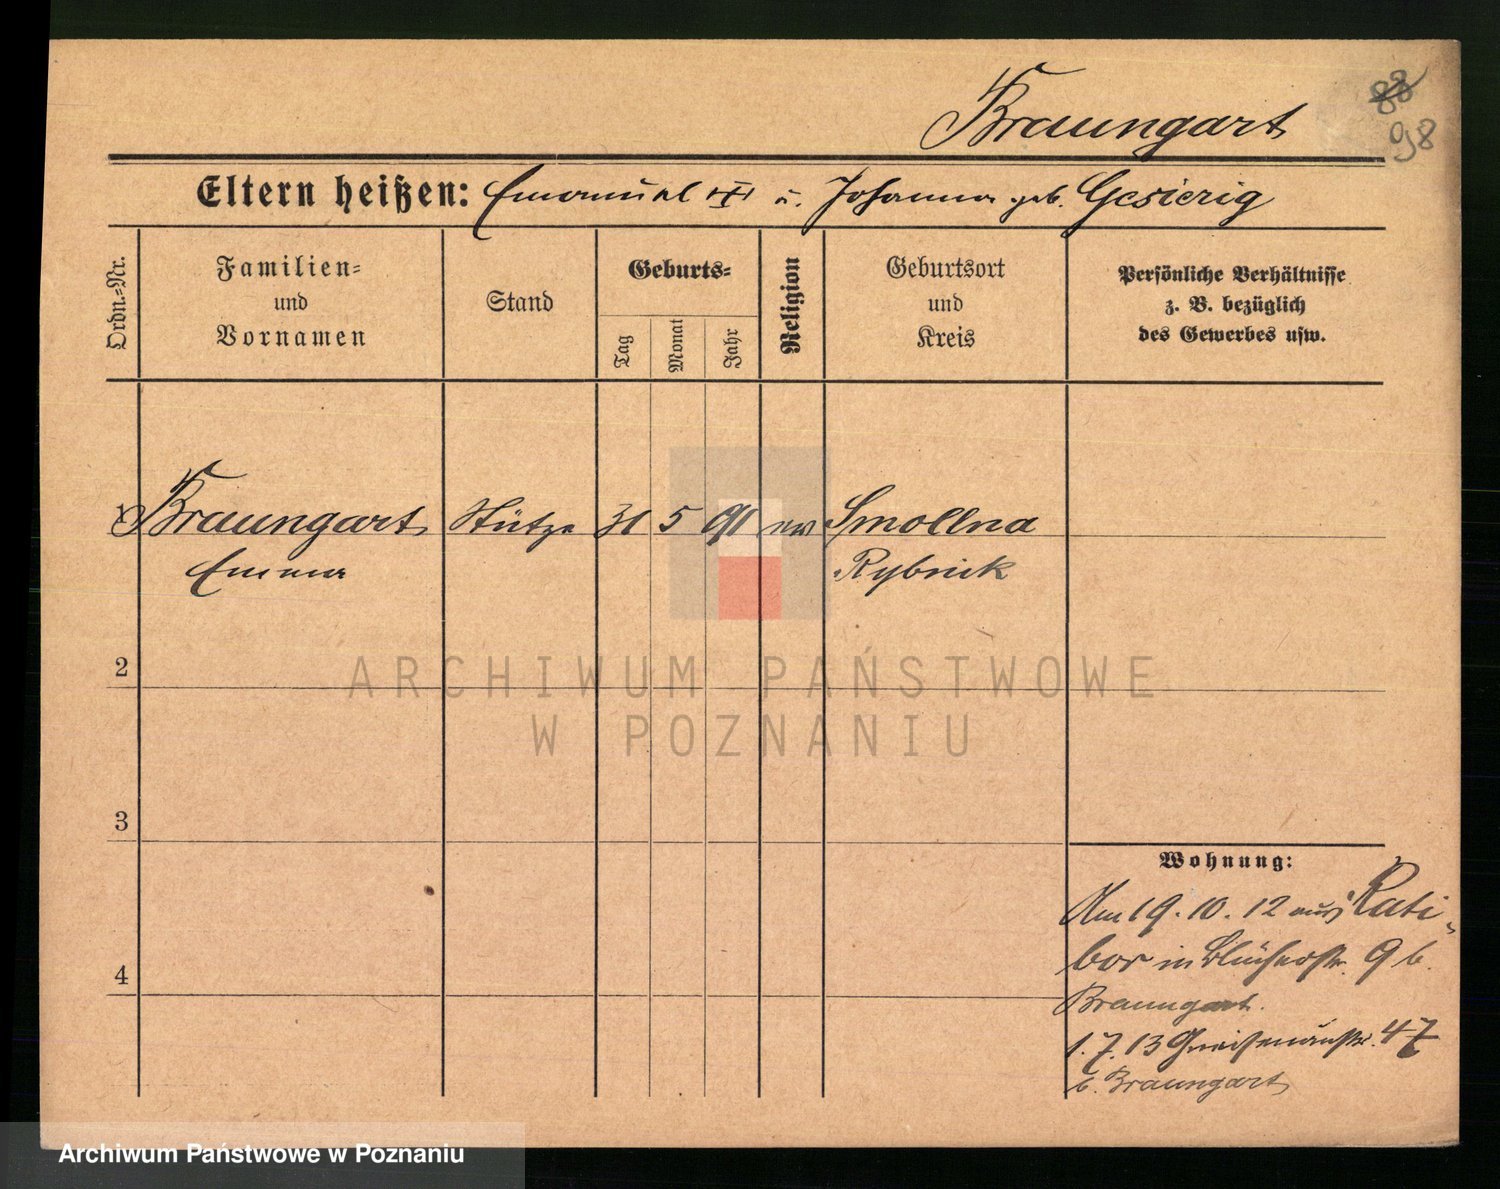 Braungart
88
98
Eltern heißen: Emanuel u. Johanna geb. Gesierig
Ordn.=Nr.
Familien=
und
Vornamen
Stand
Geburts=
Tag
Monat
Jahr
Religion
Geburtsort
und
Kreis
Persönliche Verhältnisse
z. B. bezüglich
des Gewerbes usw.
1 Braungart Stütze 31 5 91 ev Smollna
Emma Rybnik
2
ARCHIWUM PAŃSTWOWE
W POZNANIU
3
Wohnung:
Am 19. 10. 12 aus Rati-
bor in Blücherstr. 9 b.
Braungart.
1. 7. 13 Gneisenaustr. 47
b. Braungart
4
Archiwum Państwowe w Poznaniu